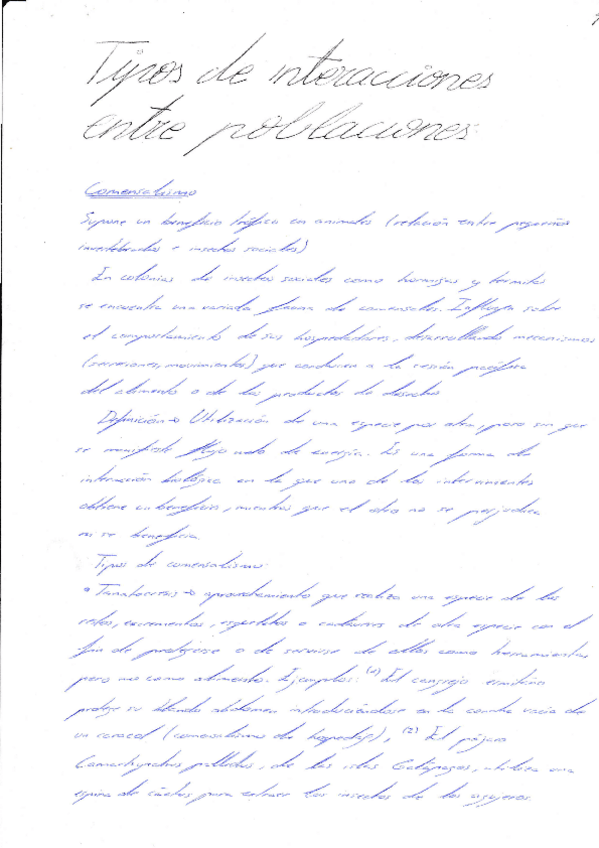 Tipos de interacciones
entre poblaciones
Comensalismo
Supone un beneficio trófico en animales (relación entre pequeños
invertebrados e insectos sociales)
En colonias de insectos sociales como hormigas y termitas
se encuentra una variada fauna de comensales. Influyen sobre
el comportamiento de sus hospedadores, desarrollando mecanismos
(secreciones, movimientos) que conducen a la cesión pacífica
del alimento o de los productos de desecho
Definición → Utilización de una especie por otra, pero sin que
se manifieste flujo neto de energía. Es una forma de
interacción biológica en la que uno de los intervinientes
obtiene un beneficio, mientras que el otro no se perjudica
ni se beneficia
Tipos de comensalismo:
• Tanatocresis → aprovechamiento que realiza una especie de los
restos, excrementos, esqueletos o cadáveres de otra especie con el
fin de protegerse o de servirse de ellos como herramientas
pero no como alimentos. Ejemplos: (1) El cangrejo ermitaño
protege su blando abdomen introduciéndose en la concha vacía de
un caracol (comensalismo de hospedaje), (2) El pájaro
Camarhynchus pallidus, de las islas Galápagos, utiliza una
espina de cactus para extraer los insectos de los agujeros.